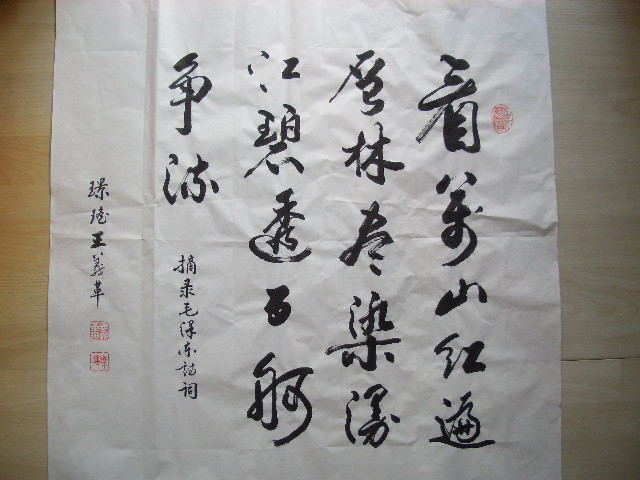 看萬山红遍
層林尽染漫
江碧透百舸
争流
摘录毛泽东诗词
璟王義革